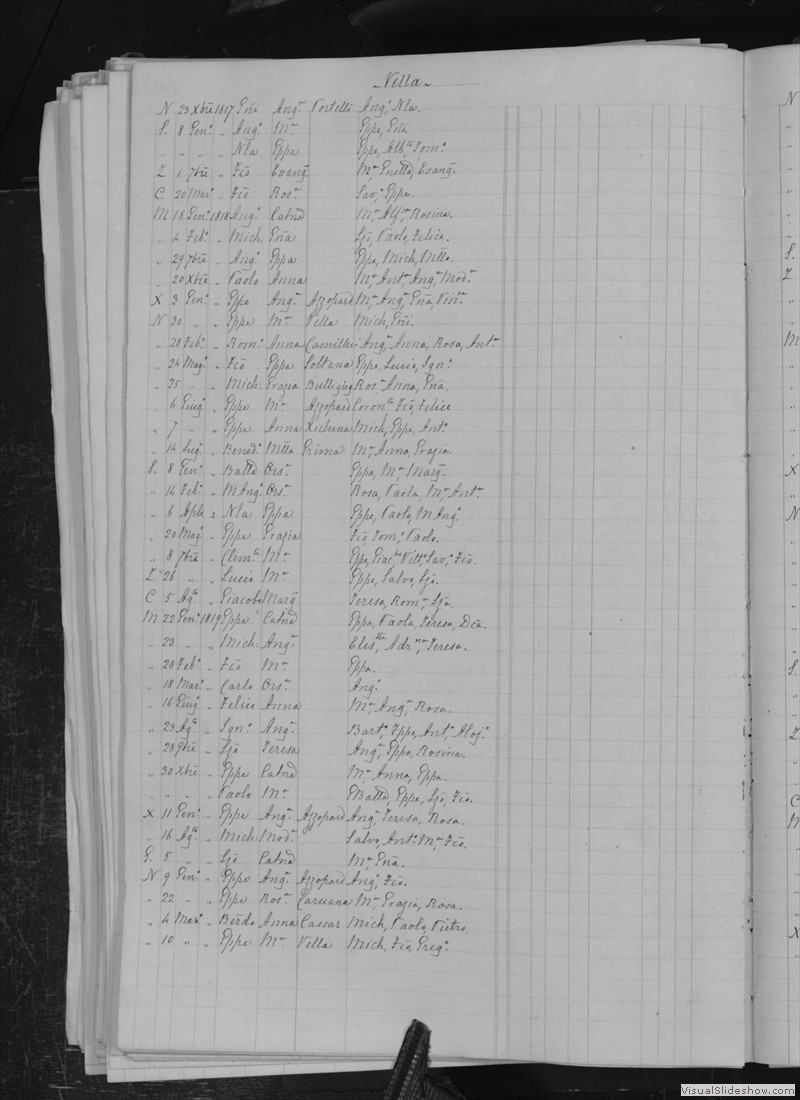 Vella
N 23 Xbre 1817 Gni Ang.a Portelli Ang.o, Nla.
S. 8 Gen.o " Ang.o M.a Gppe, Gna
" " " " Nla Gppa Gppe, Alb.to, Tom.o
Z 1 7bre " Fco Evang.a M.a Evang.
C 20 Mar.o " Fco Ros.a Sav.o, Gppe.
M 18 Gen.o 1818 Ang.o Catna M.a, Rosina.
" 4 Feb.o " Mich: Gna Ljo, Paolo, Felice.
" 29 7bre " Ang.o Gppa Gppe, Mich,
" 20 Xbre " Paolo Anna M.a, Ant.a, Ang.a, Mod.a
X 3 Gen.o " Gppe Ang.a Azzopard M.a, Ang.a, Gna,
N 30 " " Gppe M.a Vella Mich, Gni.
" 28 Feb.o " Rom.o Anna Camilleri Ang.a, Anna, Rosa, Ant.a
" 24 Mag.o " Fco Gppa Soltana Gppe, Lucio, Ign.o
" 25 " " Mich: Grazia Buttigieg Ros.a, Anna, Gna.
" 6 Giug.o " Gppe M.a Azzopard Fco, Felice
" 7 " " Gppe Anna Xicluna Mich, Gppe, Ant.o
" 14 Lug.o " Bened.o Prima M.a, Anna, Grazia.
S. 8 Gen.o " Batta Ors.a Gppa, M.a, Marg.a
" 14 Feb.o " M Ang.o Ors.a Rosa, Paola, M.a, Ant.a
" 6 Aple " Nla Gppa Gppe, Paolo, M Ang.o
" 20 Mag.o " Gppe Grazia Fco, Tom.o, Paolo.
" 8 7bre " Clem.te M.a Gppe, Sav.o, Fco.
Z 26 " " Lucio M.a Gppe, Salvo, Ljo.
C 5 Ag.to " Giacobo Marg. Teresa, Rom.a, Lja.
M 22 Gen.o 1819 Gppe Catna Gppa, Paola, Teresa, Dca.
" 23 " " Mich: Ang.a Elis.tta, Teresa.
" 28 Feb.o " Fco M.a Gppa.
" 18 Mar.o " Carlo Ors.a Ang.a
" 16 Giug.o " Felice Anna M.a, Ang.a, Rosa.
" 23 Ag.to " Ign.o Ang.a Bart.o, Ant.o, Aloj.o
" 28 9bre " Ljo Teresa Ang.a, Gppa, Rosina.
" 30 Xbre " Gppe Catna M.a, Anna, Gppa.
" " " " Paolo M.a GBatta, Gppe, Ljo, Fco.
X 11 Gen.o " Gppe Ang.a Azzopard Ang.a, Teresa, Rosa.
" 16 Ag.to " Mich: Mod.a Salvo, Ant.o, M.a, Fco.
G. 5 " " Ljo Catna M.a, Gna.
N 9 Gen.o " Gppe Ang.a Azzopard Ang.o, Fco.
" 22 " " Gppe Ros.a Caruana M.a, Grazia, Rosa.
" 4 Mar.o " Berdo Anna Cassar Mich, Paolo, Pietro.
" 10 " " Gppe M.a Vella Mich, Fco, Greg.o
VisualSlideshow.com